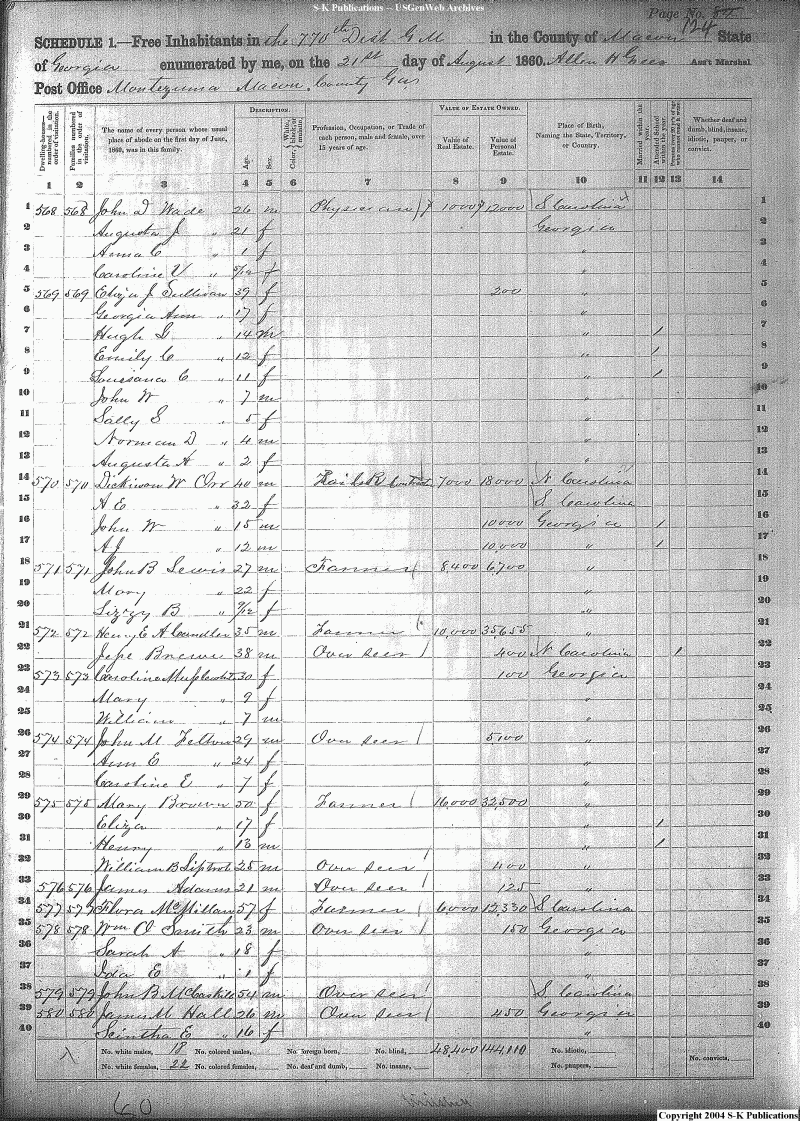 S-K Publications -- USGenWeb Archives
Page No. 124
SCHEDULE 1.—Free Inhabitants in the 770th Dist G M in the County of Macon State
of Georgia enumerated by me, on the 21st day of August 1860. Allen H Ass't Marshal
Post Office Montezuma Macon County Gas
Dwelling-houses—numbered in the order of visitation.
Families numbered in the order of visitation.
The name of every person whose usual place of abode on the first day of June, 1860, was in this family.
DESCRIPTION.
Age.
Sex.
Color, White, black, or mulatto.
Profession, Occupation, or Trade of each person, male and female, over 15 years of age.
VALUE OF ESTATE OWNED.
Value of Real Estate.
Value of Personal Estate.
Place of Birth, Naming the State, Territory, or Country.
Married within the year.
Attended School within the year.
Whether deaf and dumb, blind, insane, idiotic, pauper, or convict.
1 2 3 4 5 6 7 8 9 10 11 12 13 14
1 568 568 John D Wade 26 m Physician 1000 12000 S Carolina 1
2 Augusta J " 21 f Georgia 2
3 Anna C " 1 f " 3
4 Caroline V " 5/12 f " 4
5 569 569 Eliza J Sullivan 39 f 200 " 5
6 Georgia Ann " 17 f " 6
7 Hugh " 14 m " 1 7
8 Emily C " 12 f " 1 8
9 Louisiana C " 11 f " 1 9
10 John W " 7 m " 10
11 Sally E " 5 f " 11
12 Norman D " 4 m " 12
13 Augusta A " 2 f " 13
14 570 570 Dickinson W Orr 40 m Rail R Contractor 7000 18000 N Carolina 14
15 A E " 32 f S Carolina 15
16 John W " 15 m 10000 Georgia 1 16
17 A J " 12 m 10000 " 1 17
18 571 571 John B Lewis 27 m Farmer 8400 6700 " 18
19 Mary " 22 f " 19
20 Lizzy B " 9/12 f " 20
21 572 572 Henry E A Candler 35 m Farmer 10,000 35655 " 21
22 Jesse Brewer 38 m Over seer 400 N Carolina 1 22
23 573 573 Carolina 30 f 100 Georgia 23
24 Mary " 9 f " 24
25 William " 7 m " 25
26 574 574 John M Felton 29 m Over seer 5100 " 26
27 Ann E " 24 f " 27
28 Caroline E " 7 f " 28
29 575 575 Mary Brown 50 f Farmer 16000 32,500 " 29
30 Eliza " 17 f " 1 30
31 Henry " 13 m " 1 31
32 William B Liptrot 25 m Over seer 400 " 32
33 576 576 James Adams 21 m Over seer 125 " 33
34 577 577 Flora McMillan 57 f Farmer 6000 12,330 S Carolina 34
35 578 578 Wm O Smith 23 m Over seer 150 Georgia 35
36 Sarah A " 18 f " 36
37 Ida E " 1 f " 37
38 579 579 John B McCaskill 54 m Over seer S Carolina 38
39 580 580 James M Hall 26 m Over seer 450 Georgia 39
40 Scintha E " 16 f " 40
No. white males, 18 No. colored males, No. foreign born, No. blind, 48,400 144,110 No. idiotic,
No. white females, 22 No. colored females, No. deaf and dumb, No. insane, No. paupers, No. convicts,
60
Copyright 2004 S-K Publications